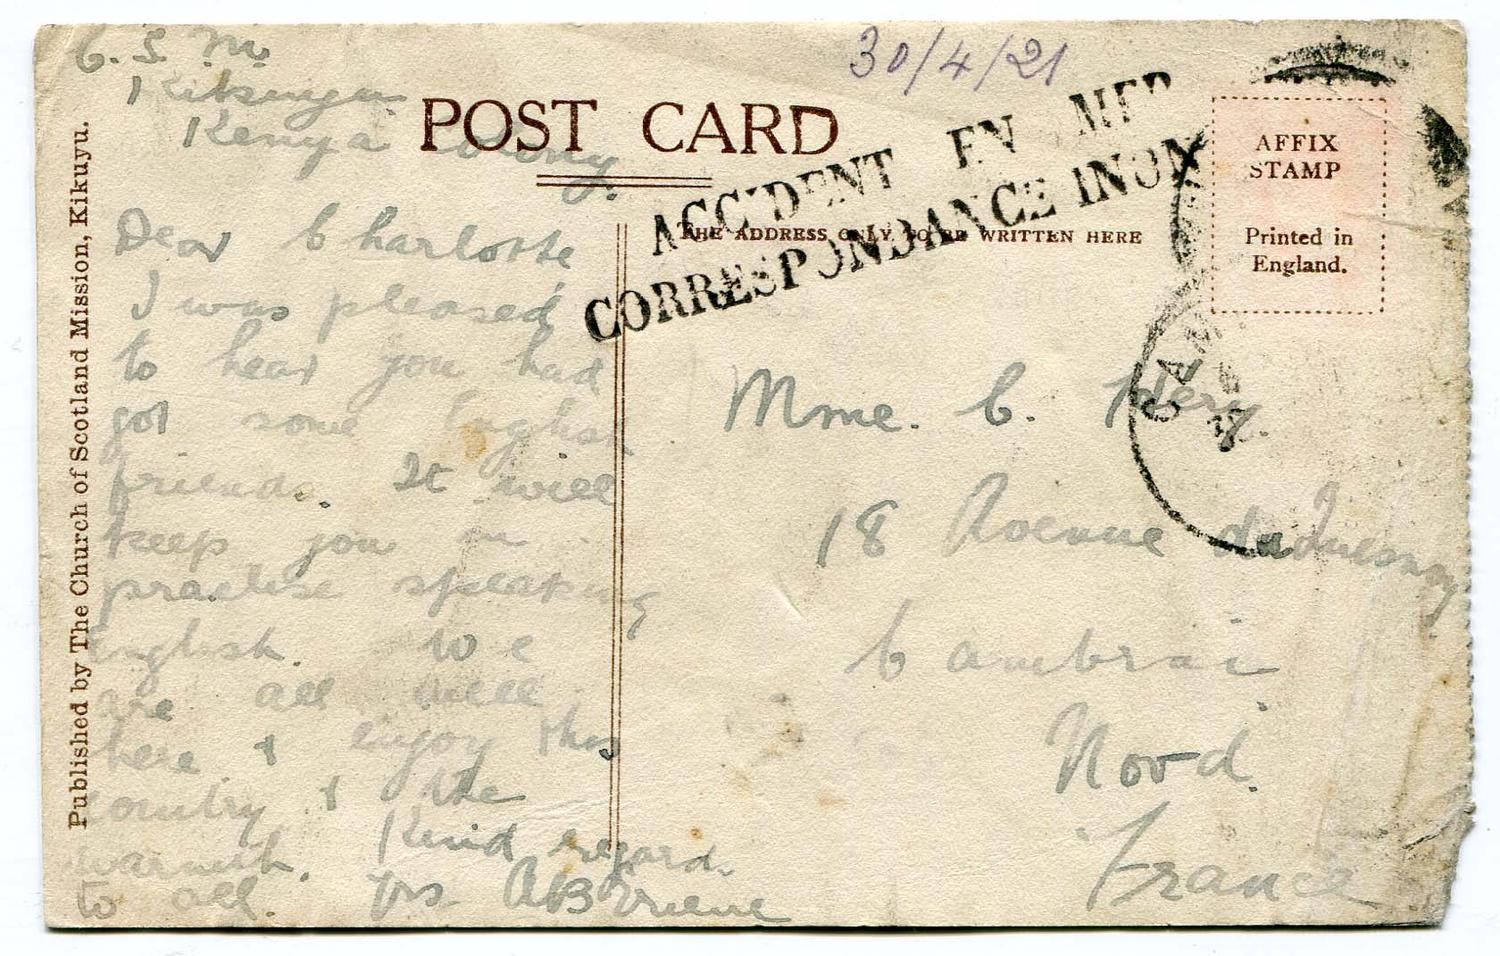 C. S. M.
Kikuyu
Kenya Colony.
30/4/21
POST CARD
ACCIDENT EN MER
CORRESPONDANCE INON
THE ADDRESS ONLY TO BE WRITTEN HERE
AFFIX
STAMP
Printed in
England.
CAM
Published by The Church of Scotland Mission, Kikuyu.
Dear Charlotte
I was pleased
to hear you had
got some English
friends. It will
keep you in
practise speaking
English. We
are all well
here & enjoy this
country & the
warmth. Kind regards
to all. yrs
Mme. C.
18 Avenue
Cambrai
Nord.
France